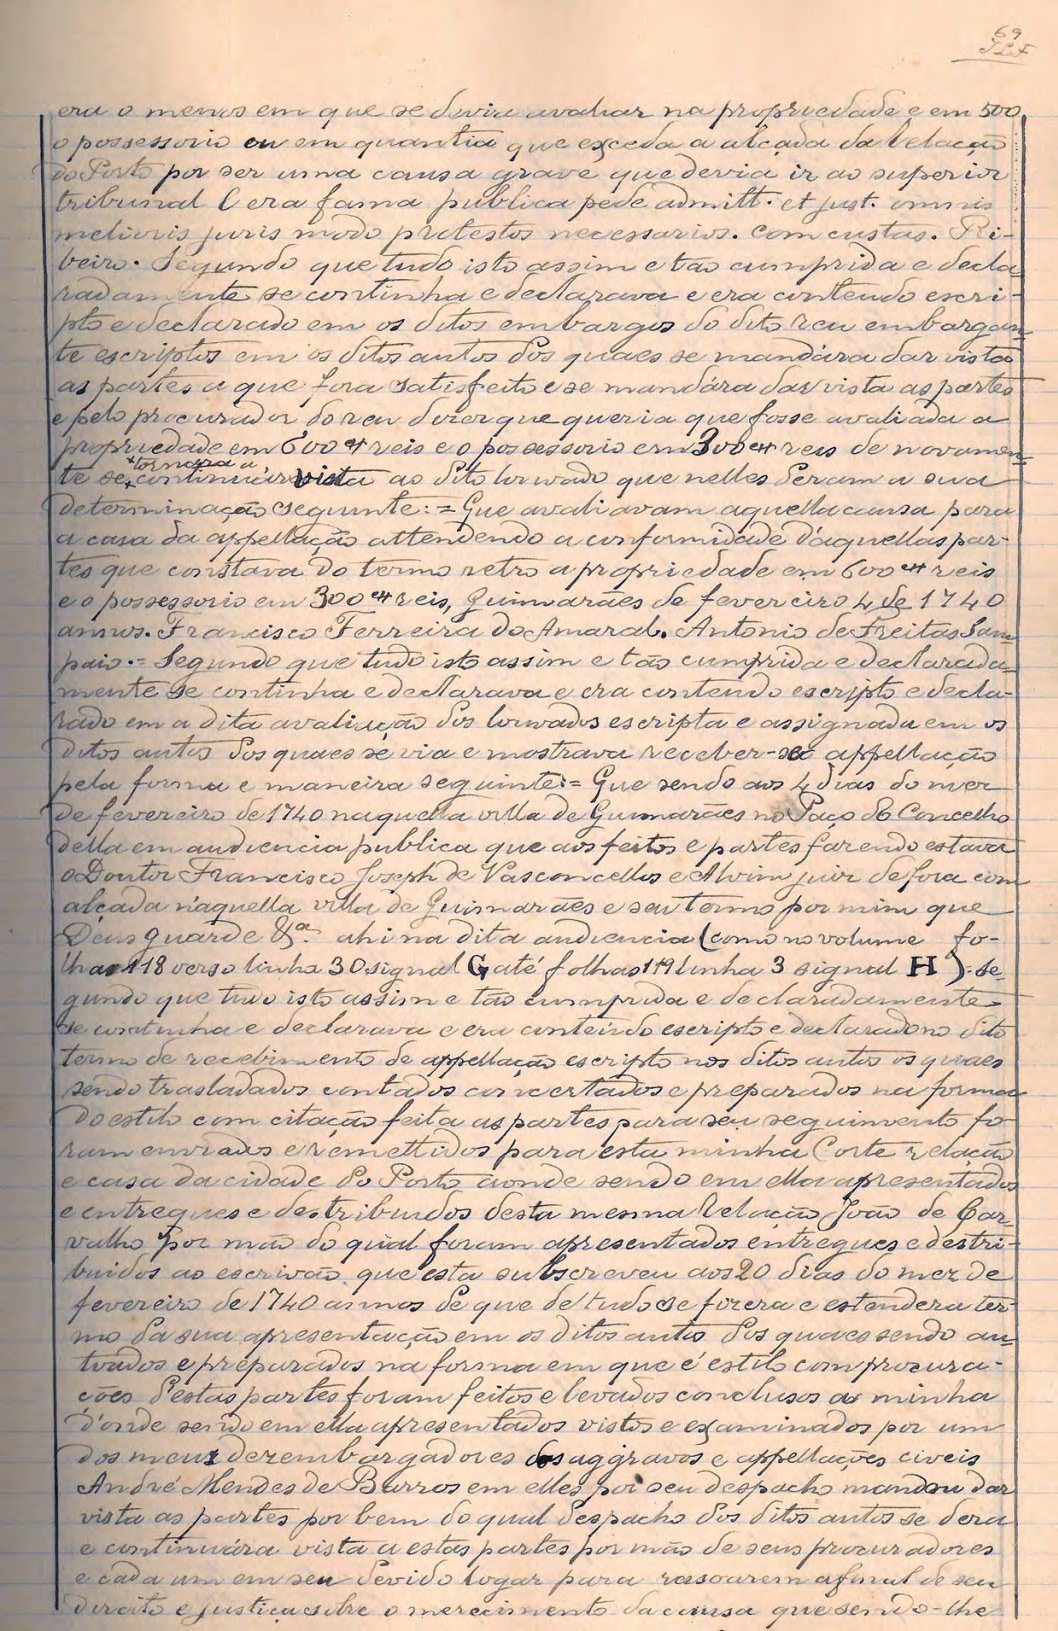 69
era o menos em que se devia avaliar na propriedade e em 500
o possessorio ou em quantia que exceda a alçada da Relação
do Porto por ser uma causa grave que devia ir ao superior
tribunal E era fama publica pede admitt. et just. omnis
melioris juris modo protestos necessarios. Com custas. Ri-
beiro. Segundo que tudo isto assim e tão cumprida e decla
radamente se continha e declarava e era contendo escri-
pto e declarado em os ditos embargos do dito reu embargan-
te escriptos em os ditos autos dos quaes se mandára dar vista
as partes a que fora satisfeito e se mandára dar vista as partes
e pelo procurador do reu dizer que queria que fosse avaliada a
propriedade em 600 reis e o possessorio em 300 reis de novamen-
te se tornara a continuar vista ao dito louvado que nelles deram a sua
determinação seguinte: = Que avaliavam aquella causa para
a casa da appellação attendendo a conformidade d'aquellas par-
tes que constava do termo retro a propriedade em 600 reis
e o possessorio em 300 reis, Guimarães de fevereiro 4 de 1740
annos. Francisco Ferreira do Amaral. Antonio de Freitas Sam-
paio. = Segundo que tudo isto assim e tão cumprida e declarada-
mente se continha e declarava e era contendo escripto e decla-
rado em a dita avaliação dos louvados escripta e assignada em os
ditos autos dos quaes se via e mostrava receber-se appellação
pela forma e maneira seguinte: = Que sendo aos 4 dias do mez
de fevereiro de 1740 naquella villa de Guimarães no Paço do Concelho
della em audiencia publica que aos feitos e partes fazendo estava
o Doutor Francisco Joseph de Vasconcellos e Alvim juiz de fora com
alçada n'aquella villa de Guimarães e seu termo por mim que
Deus guarde &a. ahi na dita audiencia (como no volume fo-
lhas 118 verso linha 30 signal G até folhas 119 linha 3 signal H) = Se-
gundo que tudo isto assim e tão cumprida e declaradamente
se continha e declarava e era conteúdo escripto e declarado no dito
termo de recebimento de appellação escripto nos ditos autos os quaes
sendo trasladados contados concertados e preparados na forma
do estilo com citação feita as partes para seu seguimento fo-
ram enviados e remettidos para esta minha Corte relação
e casa da cidade do Porto aonde sendo em ella apresentados
e entregues e destribuidos desta mesma Relação João de Car-
valho por mão do qual foram apresentados entregues e destri-
buidos ao escrivão que esta subscreveu aos 20 dias do mez de
fevereiro de 1740 annos de que de tudo se fizera e estendera ter-
mo da sua apresentação em os ditos autos dos quaes sendo au-
tuados e preparados na forma em que é estilo com procura-
ções d'estas partes foram feitos e levados conclusos a minha
d'onde sendo em ella apresentados vistos e examinados por um
dos meus dezembargadores dos aggravos e appellações civeis
André Mendes de Barros em elles por seu despacho mandou dar
vista as partes por bem do qual despacho dos ditos autos se dera
e continuára vista a estas partes por mão de seus procuradores
e cada um em seu devido logar para rasoarem afinal de seu
direito e justiça sobre o merecimento da causa que sendo-lhe